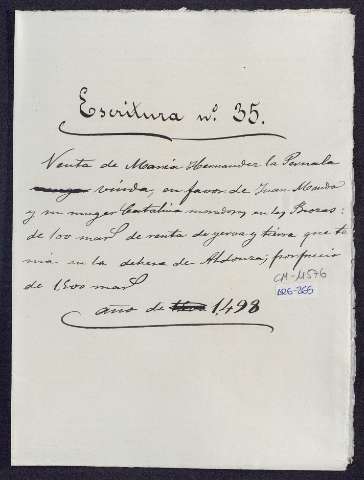 Escritura nº 35.
Venta de María Hernandez la Pernala
muger viuda, en favor de Juan
y su muger Catalina moradores en las Brozas:
de 100 mars de renta de yerva y tierra que te
nia en la dehesa de Aldonza; por precio
CM-11576
de 1,500 mars
DRG-366
año de 1498